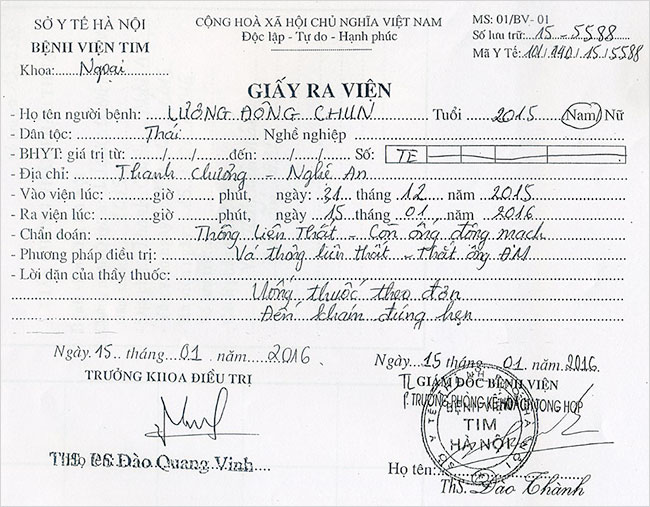 SỞ Y TẾ HÀ NỘI
BỆNH VIỆN TIM
Khoa:.....Ngoại
CỘNG HOÀ XÃ HỘI CHỦ NGHĨA VIỆT NAM
Độc lập - Tự do - Hạnh phúc
MS: 01/BV- 01
Số lưu trữ: 15 - 5588
Mã Y Tế: 101/940/15/5588
GIẤY RA VIỆN
- Họ tên người bệnh: LƯƠNG ĐÔNG CHUN Tuổi 2015 Nam/ Nữ
- Dân tộc: Thái Nghề nghiệp
- BHYT: giá trị từ:....../....../...... đến:....../....../...... Số: TE
- Địa chỉ: Thanh Chương - Nghệ An
- Vào viện lúc:......giờ......phút, ngày: 31 tháng 12 năm 2015
- Ra viện lúc:......giờ......phút, ngày 15 tháng 01 năm 2016
- Chẩn đoán: Thông liên thất - Còn ống động mạch
- Phương pháp điều trị: Vá thông liên thất - Thắt ống ĐM
- Lời dặn của thầy thuốc:
Uống thuốc theo đơn
Đến khám đúng hẹn
Ngày 15 tháng 01 năm 2016
TRƯỞNG KHOA ĐIỀU TRỊ
ThS. BS Đào Quang Vinh
Ngày 15 tháng 01 năm 2016
TL GIÁM ĐỐC BỆNH VIỆN
P. TRƯỞNG PHÒNG KẾ HOẠCH TỔNG HỢP
BỆNH VIỆN
TIM
HÀ NỘI
Họ tên:
ThS. Đào Thành